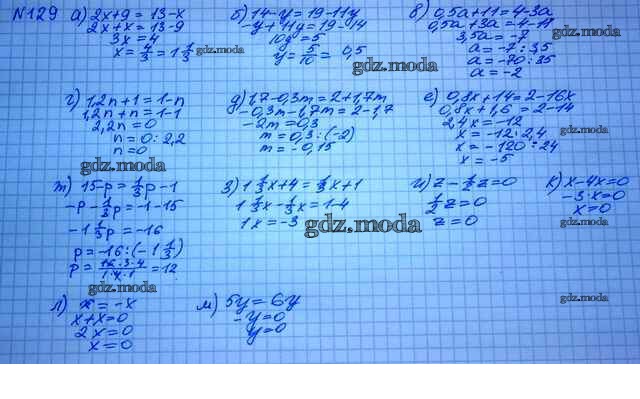 №129 а) 2x+9 = 13-x
2x+x = 13-9
3x = 4
x = 4/3 = 1 1/3
б) 14-y = 19-11y
-y+11y = 19-14
10y = 5
y = 5/10 = 0,5
в) 0,5a+11 = 4-3a
0,5a+3a = 4-11
3,5a = -7
a = -7:3,5
a = -70:35
a = -2
gdz.moda
gdz.moda
г) 1,2n+1 = 1-n
1,2n+n = 1-1
2,2n = 0
n = 0:2,2
n = 0
д) 1,7-0,3m = 2+1,7m
-0,3m-1,7m = 2-1,7
-2m = 0,3
m = 0,3:(-2)
m = -0,15
е) 0,8x+14 = 2-16x
0,8x+1,6 = 2-14
2,4x = -12
x = -12:2,4
x = -120:24
x = -5
gdz.moda
gdz.moda
gdz.moda
ж) 15-p = 1/3p-1
-p-1/3p = -1-15
-1 1/3p = -16
p = -16:(-1 1/3)
= 12
з) 1 1/3x+4 = 1/3x+1
1 1/3x-1/3x = 1-4
1x = -3
и) z-1/2z=0
1/2z=0
z=0
к) x-4x=0
-3x=0
x=0
gdz.moda
gdz.moda
gdz.moda
л) x = -x
x+x=0
2x=0
x=0
м) 5y = 6y
-y=0
y=0
gdz.moda
gdz.moda
gdz.moda